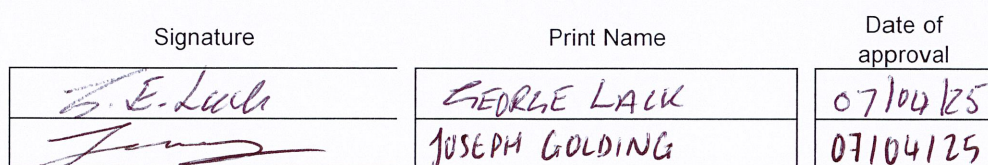 Signature Print Name Date of approval
G. E. Lack GEORGE LACK 07/04/25
JOSEPH GOLDING 07/04/25